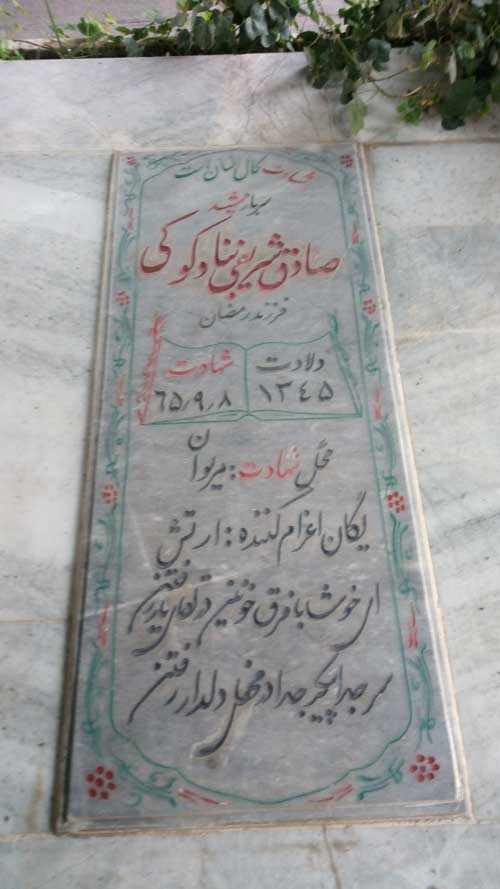 شهادت کمال انسان است
سرباز شهید
صادق شریفی بنادکوکی
فرزند رمضان
ولادت شهادت
۱۳٤۵ ٦۵٫۹٫۸
محل شهادت : میروان
یگان اعزام کننده : ارتش
ای خوش با فرق خونین در لقای یار رفتن
سر جدا پیکر جدا در محفل دلدار رفتن